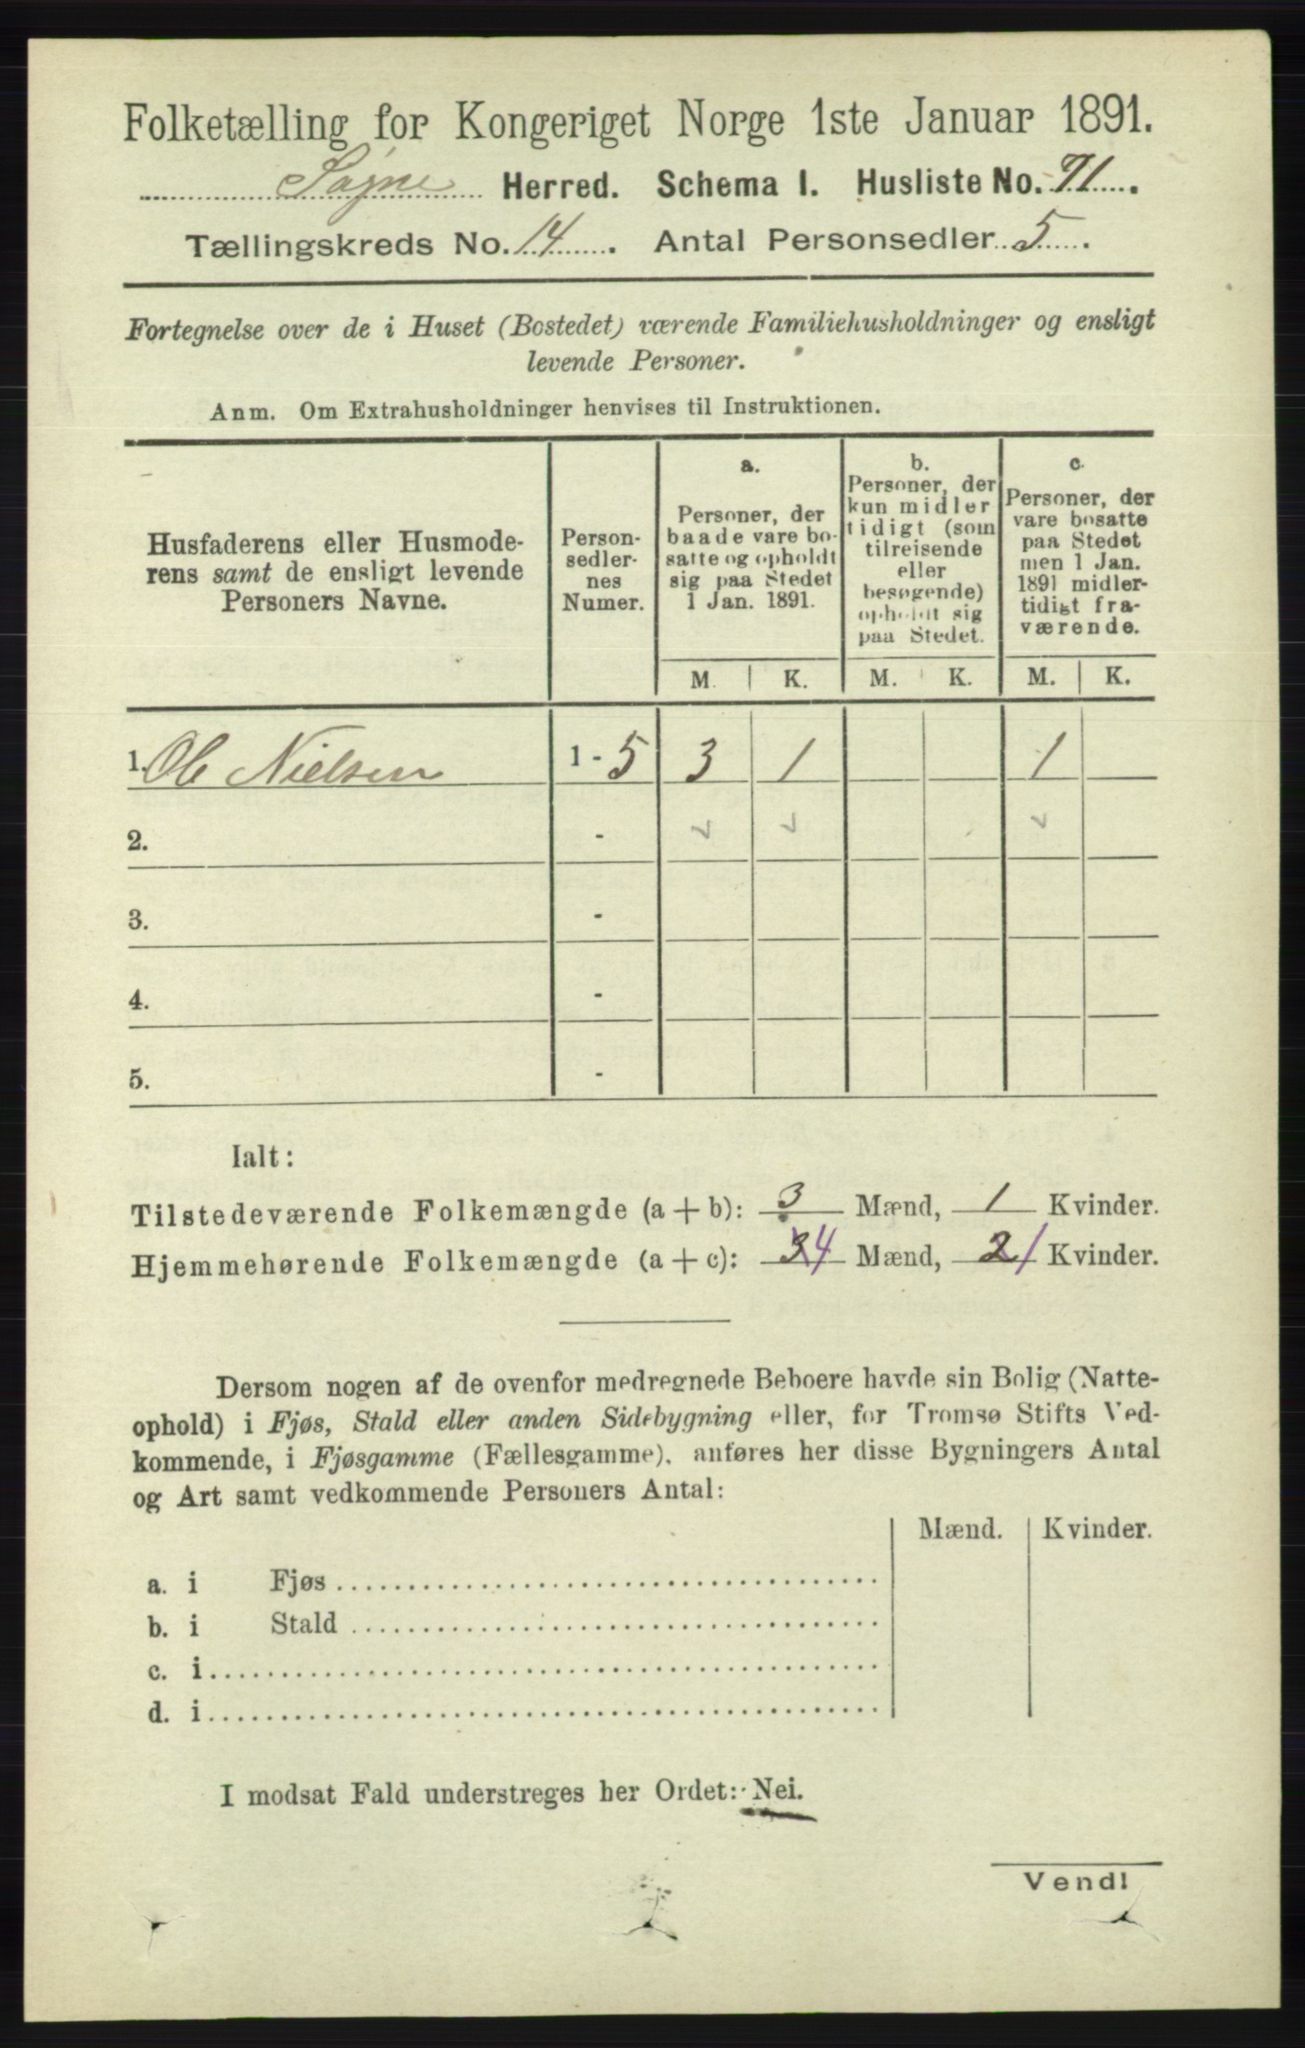 Folketælling for Kongeriget Norge 1ste Januar 1891.
Søgne Herred. Schema 1. Husliste No. 71.
Tællingskreds No. 14. Antal Personsedler 5.
Fortegnelse over de i Huset (Bostedet) værende Familiehusholdninger og ensligt
levende Personer.
Anm. Om Extrahusholdninger henvises til Instruktionen.
Husfaderens eller Husmode-
rens samt de ensligt levende
Personers Navne.
Person-
sedler-
nes
Numer.
a.
Personer, der
baade vare bo-
satte og opholdt
sig paa Stedet
1 Jan. 1891.
b.
Personer, der
kun midler
tidigt (som
tilreisende
eller
besøgende)
opholdt sig
paa Stedet.
c.
Personer, der
vare bosatte
paa Stedet
men 1 Jan.
1891 midler-
tidigt fra-
værende.
M. K. M. K. M. K.
1. Ole Nielsen 1 - 5 3 1 1
2. -
3. -
4. -
5. -
Ialt:
Tilstedeværende Folkemængde (a + b): 3 Mænd, 1 Kvinder.
Hjemmehørende Folkemængde (a + c): 34 Mænd, 21 Kvinder.
Dersom nogen af de ovenfor medregnede Beboere havde sin Bolig (Natte-
ophold) i Fjøs, Stald eller anden Sidebygning eller, for Tromsø Stifts Ved-
kommende, i Fjøsgamme (Fællesgamme). anføres her disse Bygningers Antal
og Art samt vedkommende Personers Antal:
Mænd. Kvinder.
a. i Fjøs
b. i Stald
c. i
d. i
I modsat Fald understreges her Ordet: Nei.
Vend!